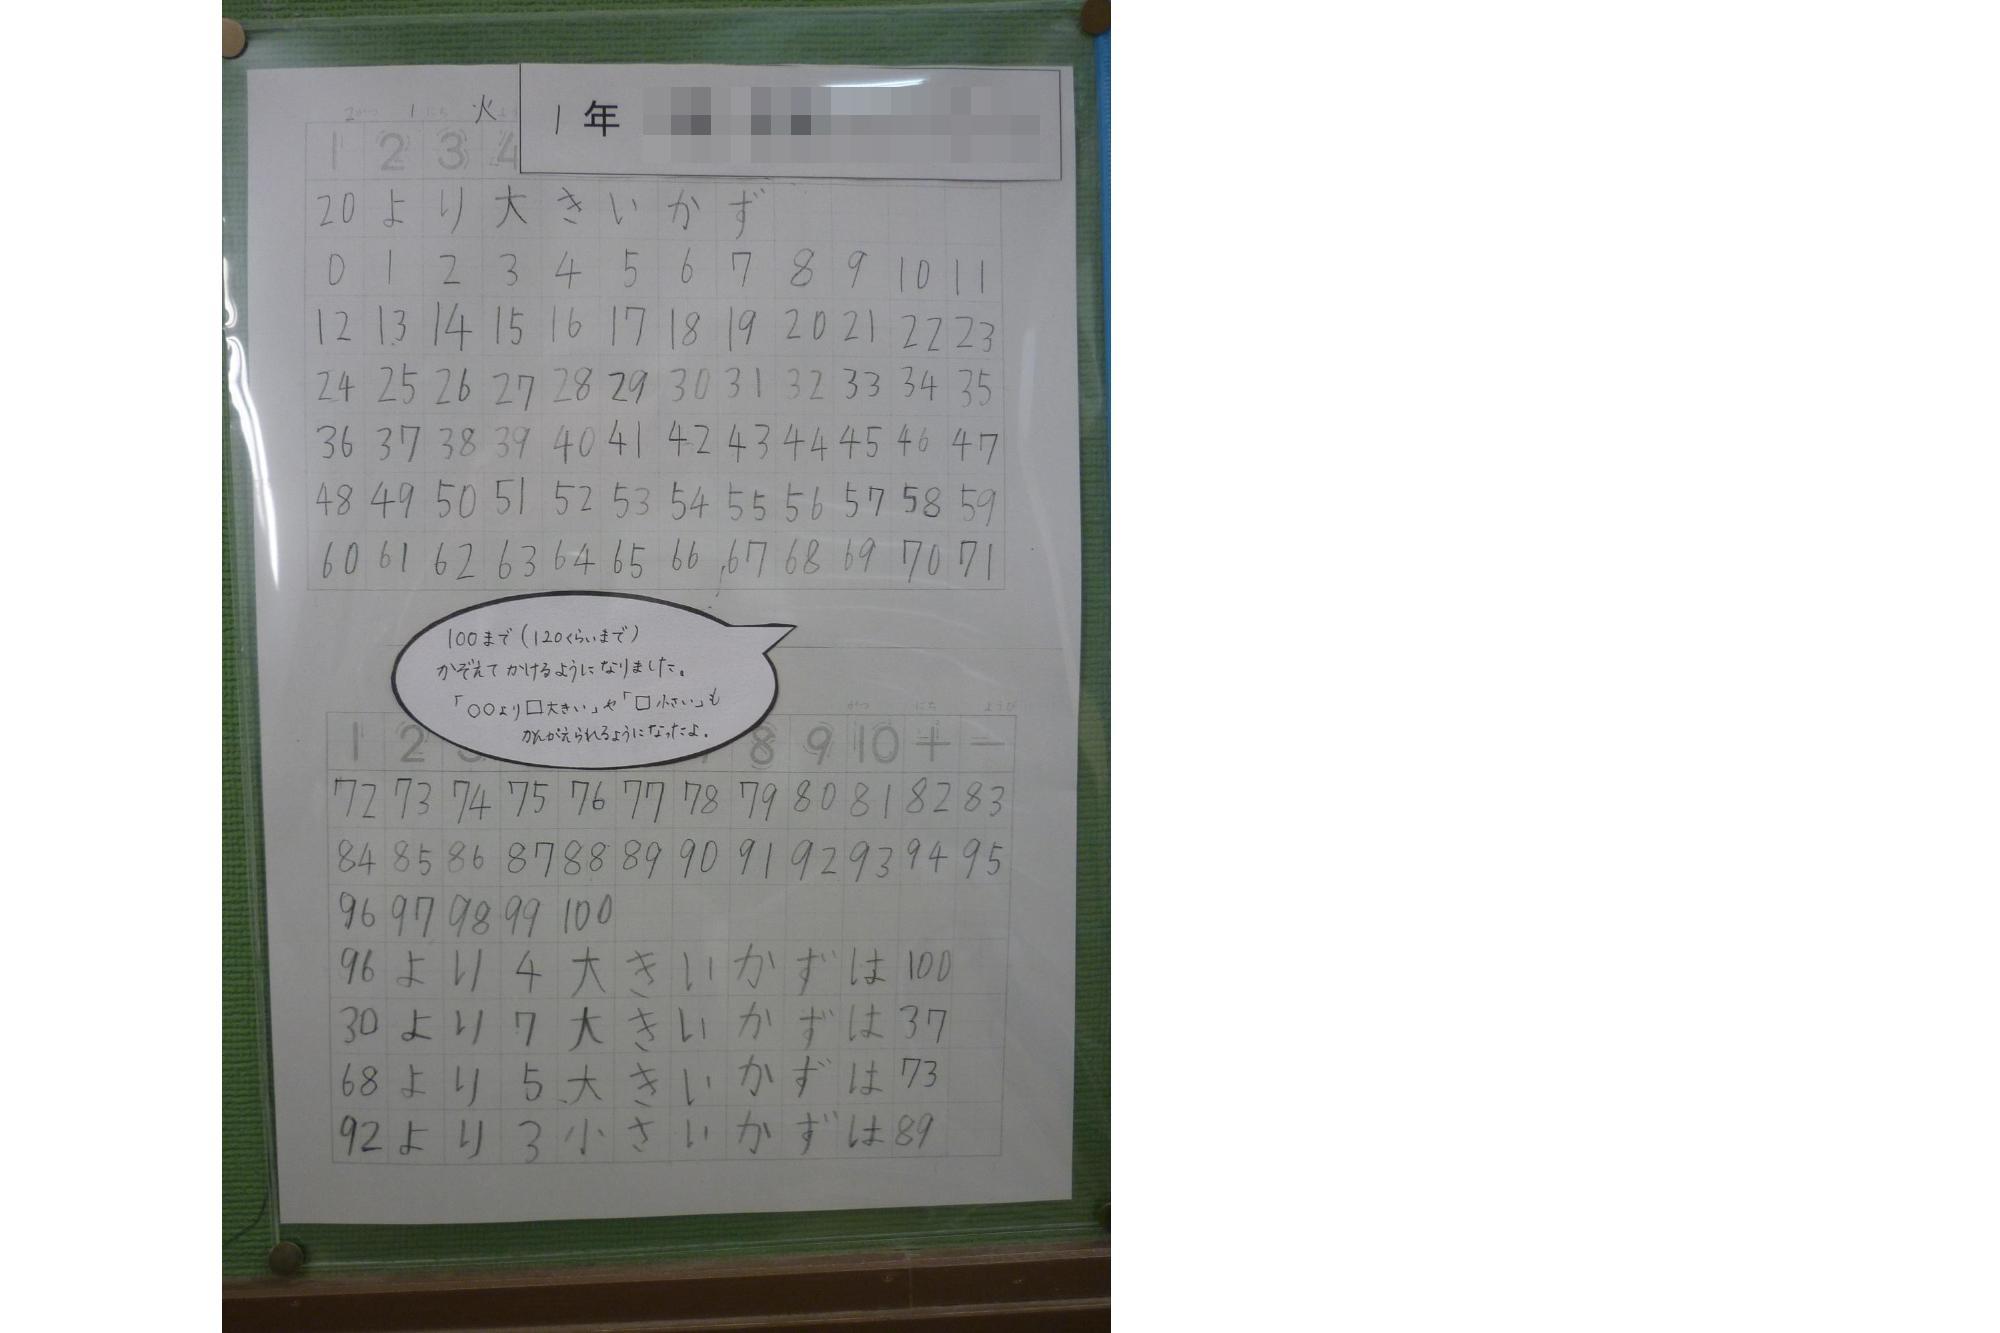 2がつ 1にち 火よう
1年
1 2 3 4
20より大きいかず
0 1 2 3 4 5 6 7 8 9 10 11
12 13 14 15 16 17 18 19 20 21 22 23
24 25 26 27 28 29 30 31 32 33 34 35
36 37 38 39 40 41 42 43 44 45 46 47
48 49 50 51 52 53 54 55 56 57 58 59
60 61 62 63 64 65 66 67 68 69 70 71
100まで(120くらいまで)
かぞえてかけるようになりました。
「○○より□大きい」や「□小さい」も
かんがえられるようになったよ。
がつ にち ようび
1 2 3 8 9 10 + −
72 73 74 75 76 77 78 79 80 81 82 83
84 85 86 87 88 89 90 91 92 93 94 95
96 97 98 99 100
96より4大きいかずは100
30より7大きいかずは37
68より5大きいかずは73
92より3小さいかずは89